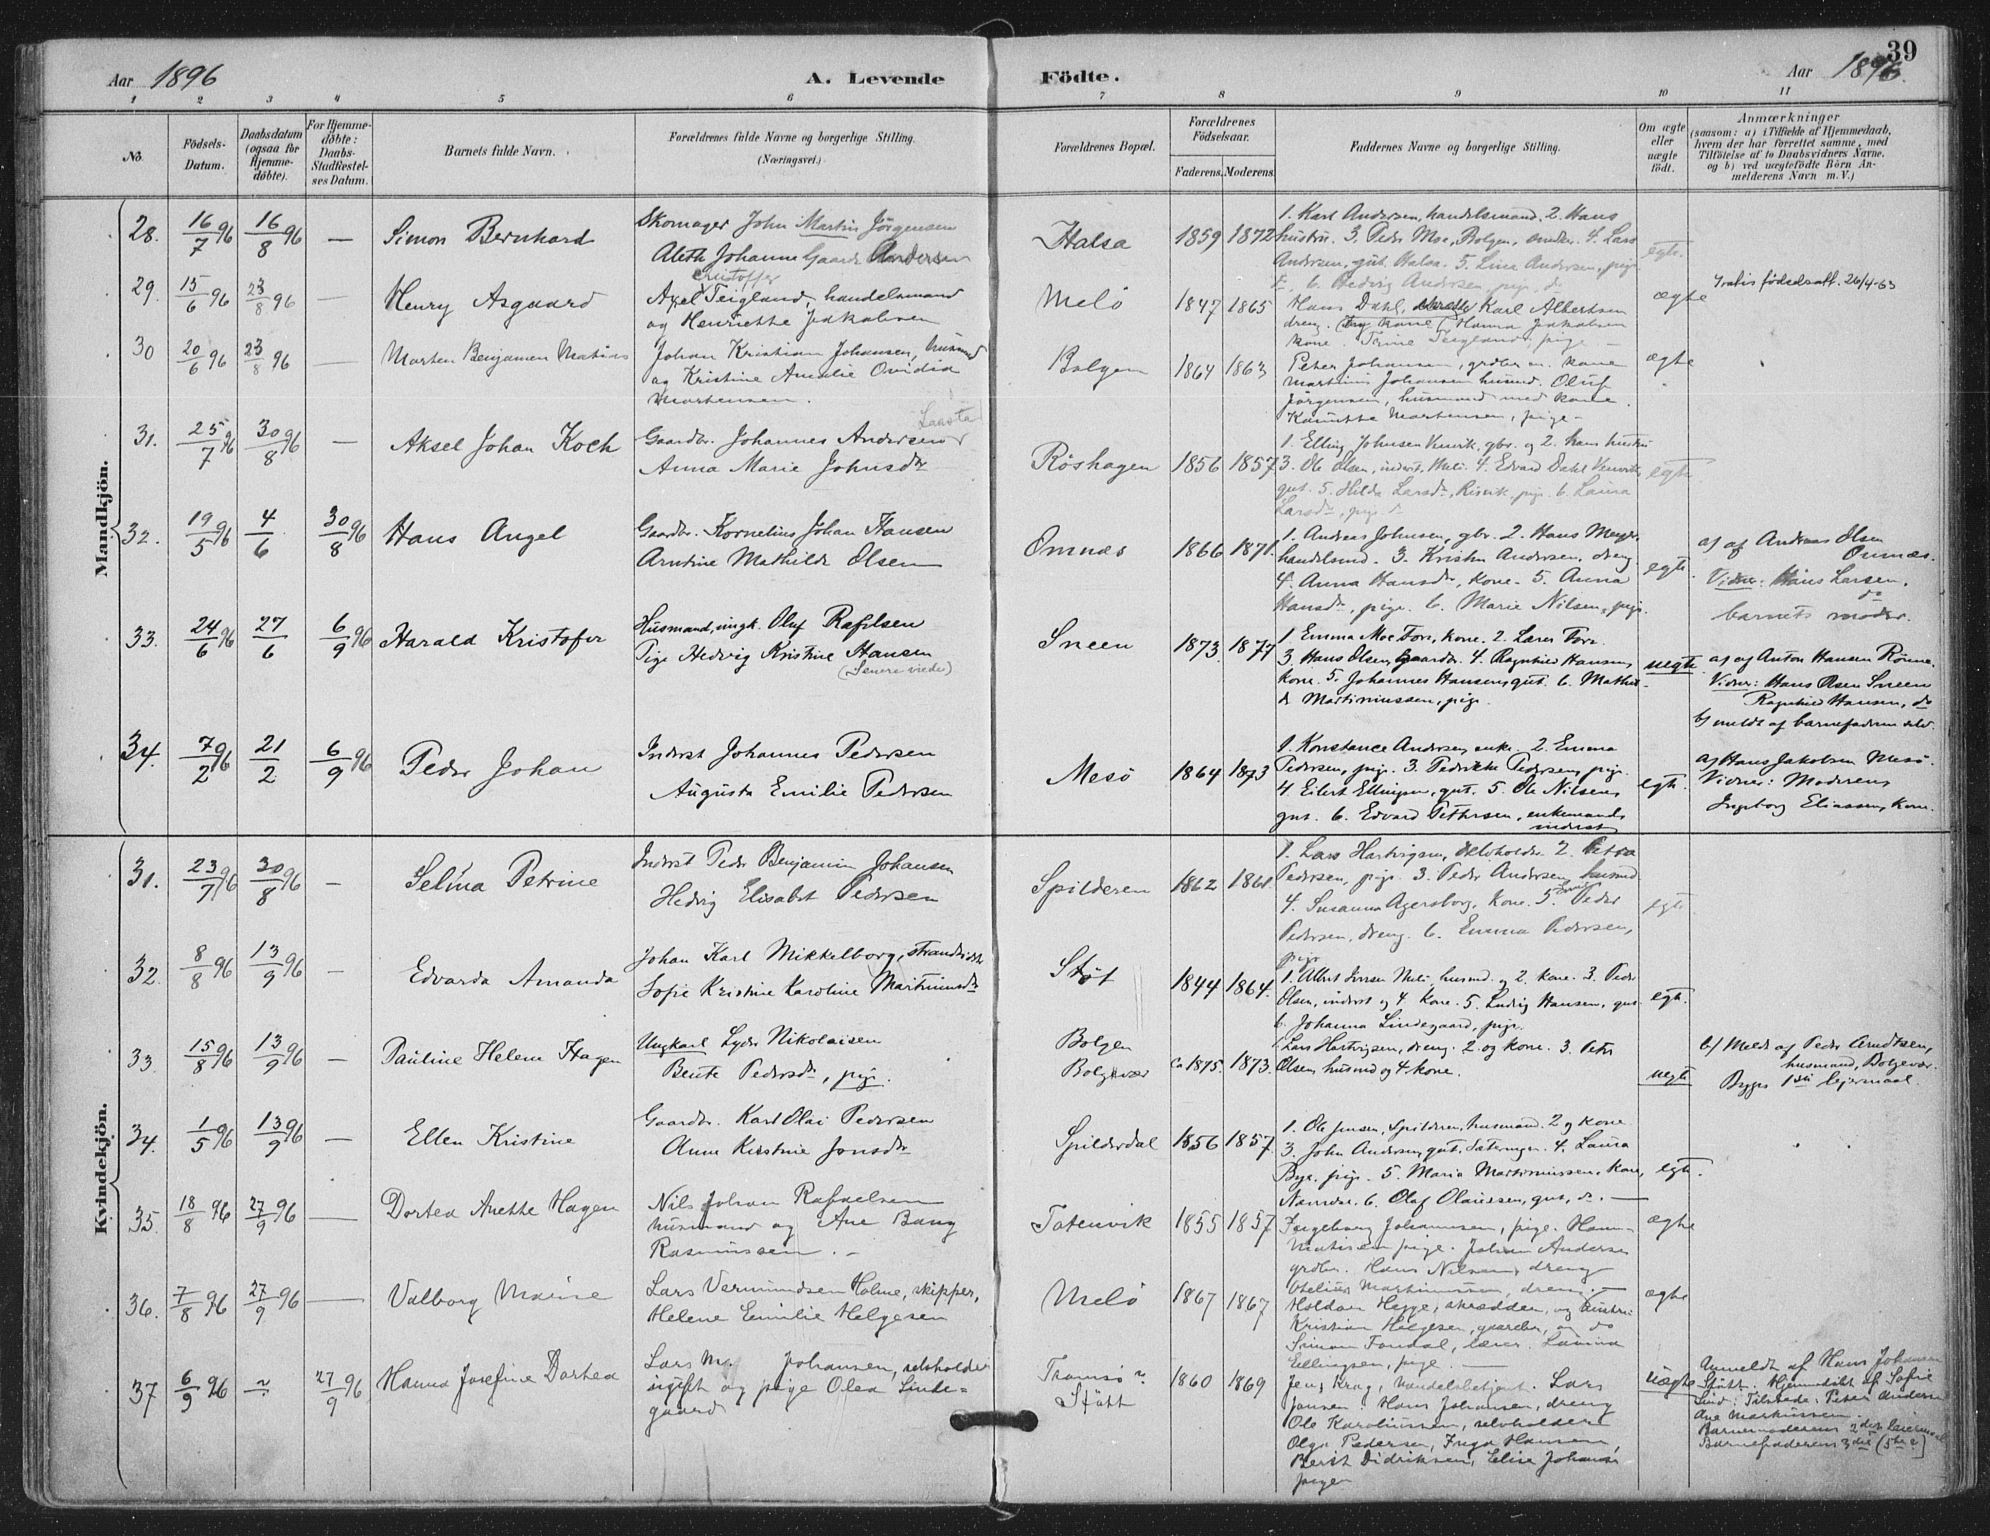 39
Aar 1896
A. Levende
Fødte.
Aar 1896.
1 2 3 4 5 6 7 8 9 10 11
No.
Födsels-
Datum.
Daabsdatum
(ogsaa for
Hjemme-
døbte).
For Hjemme-
døbte:
Daabs-
Stadfæstel-
ses Datum.
Barnets fulde Navn.
Forældrenes fulde Navne og borgerlige Stilling.
(Næringsvei.)
Forældrenes Bopæl.
Forældrenes
Födselsaar.
Faderens. Moderens.
Faddernes Navne og borgerlige Stilling.
Om ægte
eller
uægte
födt.
Anmærkninger
(saasom: a) i Tilfælde af Hjemmedaab,
hvem der har forrettet samme, med
Tilföielse af to Daabsvidners Navne,
og b) ved uægtefödte Börn An-
melderens Navn m. V.)
Mandkjön.
28. 16/7 96 16/8 96 — Simon Bernhard
Skomager John Martin Jörgensen
Aleth Johanne Gaarder Andersen
Halsa 1859 1872
1. Karl Andersen, handelsmand. 2. Hans
hustru. 3. Peder Moe, Bolgen, 4. Lars
Andersen, gut. Halsa. 5. Lina Andersen, pige
6. Hedvig Andersen, pige, do
egte.
29. 15/6 96 23/8 96 — Henry Asgaard
Kristoffer
Axel Teigland, handelsmand
og Henriette Jakobsen
Melö 1847 1865
Hans Dahl, Karl Albertsen
dreng. Hanna Jakobsen
kone. Trine Teigland, pige —
ægte
Gratis födselsatt. 26/4-63
30 20/6 96 23/8 96 — Morten Benjamen Matias
Johan Kristian Johansen, husmd
og Kristine Amalie Ovidia
Martensen.
Bolgen 1864 1863
Peter Johansen, grdbr m. kone
Martinus Johansen husmd. Oluf
Jörgensen, husmand med kone.
Martensen, pige —
ægte
31. 25/7 96 30/8 96 — Aksel Johan Koch
Gaardbr. Johannes Andersen
Anna Marie Johnsdr
Röshagen 1856 1857
1. Elling Johnsen gbr. og 2. hans hustru
3. Ole Olsen, inderst, Melö. 4. Edvard Dahl
gut. 5. Hilda Larsdr, pige. 6. Laura
Larsdr, pige do
egte
32. 19/5 96 4/6 30/8 96 Hans Angel
Gaardbr. Kornelius Johan Hansen
Arntine Mathilde Olsen
Omnes 1866 1871.
1. Andreas Johnsen, gbr. 2. Hans Meyer
handelsmd. 3. Kristen Andersen, dreng
4. Anna Hansdr, kone. 5. Anna
Hansdr, pige. 6. Marie Nilsen, pige.
egte.
a) af Andreas Olsen
Omnæs.
Vidner: Hans Larsen.
do
barnets moder.
33. 24/6 96 27/6 6/9 96 Harald Kristofer
Husmand, ungk. Oluf Rafelsen
Pige Hedvig Kristine Hansen
(Senere viede)
Sneen 1873. 1877
1. Emma Moe Fore, kone. 2. Lars Fore
3. Hans Olsen, Gaardbr. 4. Ragnhild Hansen,
kone. 5. Johannes Hansen, gut. 6. Mathil-
de Martinussen, pige.
uegte
a) af Anton Hansen Rönne.
Vidner: Hans Olsen Sneen
Ragnhild Hansen, do
b) meldt af barnefaderen selv.
34. 7/2 96 21/2 6/9 96 Peder Johan
Inderst Johannes Pedersen
Augusta Emilie Pedersen
Mesö 1864 1873
1. Konstance Andersen, enke. 2. Emma
Pedersen, pige. 3. Pedrikke Pedersen, pige.
4. Eilert Ellingsen, gut. 5. Ole Nilsen,
gut. 6. Edvard Pettersen, enkemand,
inderst
egte.
a) Hans Jakobsen Mesö.
Vidner: Moderen,
Ingeborg Eliassen, kone.
Kvindekjön.
31. 23/7 96 30/8 96 — Selina Petrine
Inderst Peder Benjamin Johansen
Hedvig Elisabet Pedersen
Spilderen 1862 1861.
1. Lars Hartvigsen, selvholder. 2. Petra
Pedersen, pige. 3. Peder Andersen, husmd
4. Susanna Agersborg, kone. 5. Peder
Pedersen, dreng. 6. Emma Pedersen,
pige
egte
32. 8/8 96 13/9 96 — Edvarda Amanda
Johan Karl Mikkelborg, strandsidd.
Sofie Kristine Karoline Martinusdr
Stöt 1844 1864.
1. Albert Jensen Melö, husmd. og 2. kone. 3. Peder
Olsen, inderst og 4. kone. 5. Ludvig Hansen, gut
6. Johanna Lindegaard, pige.
egte.
33. 15/8 96 13/9 96 — Pauline Helene Hagen
Ungkarl Lyder Nikolaisen
Berite Pedersdr, pige.
Bolgen
Bolgvær ca 1875. 1873.
Lars Hartvigsen, dreng. 2. og kone. 3. Peter
Olsen, husmd og 4. kone.
uegte
b) Meldt af Peder Arndtsen,
husmand, Bolgevær.
Begges 1ste leiermaal.
34. 1/5 96 13/9 96 — Ellen Kristine
Gaardbr. Karl Olai Pedersen
Anne Kirstine Jonsdr
Spilderdal 1856 1857
1. Ole Jensen, Spilderen, husmand. 2 og kone
3. John Andersen, gut, Sæternger. 4. Laura
Bye, pige. 5. Maria Martinussen, kone,
6. Olaf Olaussen, gut, do. —
egte.
35. 18/8 96 27/9 96 — Dortea Anette Hagen
Nils Johan Rafaelsen
husmand og Ane Bang
Rasmussen. —
Tatenvik 1855 1857
Ingeborg Johannesen, pige. Hans
Matisen pige. Johan Andersen
grdbr. Hans Nilsen, dreng
Martinussen, dreng. —
ægte
36. 7/8 96 27/9 96 — Valborg Marie
Lars Vermundsen Holme, skipper,
Helene Emilie Helgesen
Melö 1867 1867
Haldan Hegge, skrædder, og hustru.
Kristian Helgesen, gaardbr, og do
Simon Fondal, lærer. Lamina
Ellingsen, pige. —
ægte
37 6/9 96 ~ 27/9 96 Hanna Josefine Dortea
Lars M. Johansen, selvholder
ugift og pige Olea Linde-
gaard
Tromsö
Stött 1860 1869
Jens Krag, handelsbetjent. Lars
Jansen. Hans Johansen, dreng
Ole Karoliussen, selvholder
Olga Pedersen, Inga Hansen,
Berit Didriksen, Elise Johanse
piger
uægte
Anmeldt af Hans Johansen
Stött. Hjemmedöbt af Sofie
Lind. Tilstede: Peter Andersen
Ane Markussen.
Barnemoderens 2det leiermaal
Barnefaderens 3die (5te?)